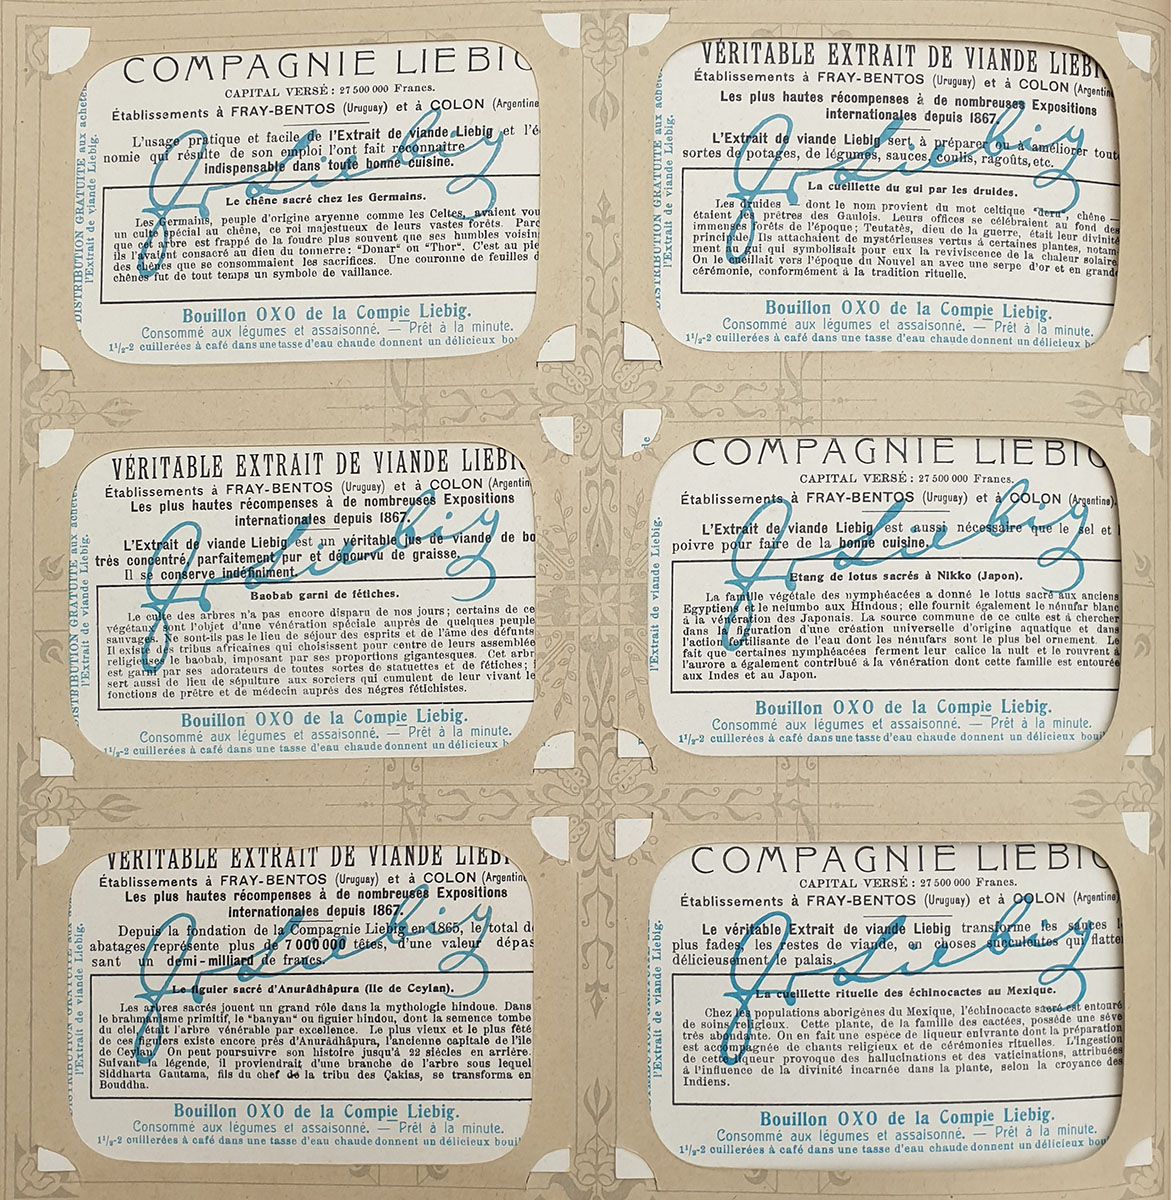 COMPAGNIE LIEBIG
CAPITAL VERSÉ : 27 500 000 Francs.
Établissements à FRAY-BENTOS (Uruguay) et à COLON (Argentine
L'usage pratique et facile de l'Extrait de viande Liebig et l'é
nomie qui résulte de son emploi l'ont fait reconnaître
indispensable dans toute bonne cuisine.
Le chêne sacré chez les Germains.
Les Germains, peuple d'origine aryenne comme les Celtes, avaient vou
un culte spécial au chêne, ce roi majestueux de leurs vastes forêts. Parc
que cet arbre est frappé de la foudre plus souvent que ses humbles voisins
ils l'avaient consacré au dieu du tonnerre: "Donar" ou "Thor". C'est au pie
des chênes que se consommaient les sacrifices. Une couronne de feuilles d
chênes fut de tout temps un symbole de vaillance.
Bouillon OXO de la Compie Liebig.
Consommé aux légumes et assaisonné. — Prêt à la minute.
1½-2 cuillerées à café dans une tasse d'eau chaude donnent un délicieux bo
DISTRIBUTION GRATUITE aux achete
l'Extrait de viande Liebig.
J. Liebig
VÉRITABLE EXTRAIT DE VIANDE LIEBI
Établissements à FRAY-BENTOS (Uruguay) et à COLON (Argentine
Les plus hautes récompenses à de nombreuses Expositions
internationales depuis 1867.
L'Extrait de viande Liebig sert à préparer ou à améliorer tout
sortes de potages, de légumes, sauces, coulis, ragoûts, etc.
La cueillette du gui par les druides.
Les druides — dont le nom provient du mot celtique "deru", chêne —
étaient les prêtres des Gaulois. Leurs offices se célébraient au fond des
immenses forêts de l'époque; Teutatès, dieu de la guerre, était leur divinité
principale. Ils attachaient de mystérieuses vertus à certaines plantes, notam
ment au gui qui symbolisait pour eux la reviviscence de la chaleur solaire
On le cueillait vers l'époque du Nouvel an avec une serpe d'or et en grande
cérémonie, conformément à la tradition rituelle.
Bouillon OXO de la Compie Liebig.
Consommé aux légumes et assaisonné. — Prêt à la minute.
1½-2 cuillerées à café dans une tasse d'eau chaude donnent un délicieux bou
DISTRIBUTION GRATUITE aux achete
l'Extrait de viande Liebig.
J. Liebig
VÉRITABLE EXTRAIT DE VIANDE LIEBIG
Établissements à FRAY-BENTOS (Uruguay) et à COLON (Argentin
Les plus hautes récompenses à de nombreuses Expositions
internationales depuis 1867.
L'Extrait de viande Liebig est un véritable jus de viande de bo
très concentré, parfaitement pur et dépourvu de graisse.
Il se conserve indéfiniment.
Baobab garni de fétiches.
Le culte des arbres n'a pas encore disparu de nos jours; certains de ce
végétaux sont l'objet d'une vénération spéciale auprès de quelques peuple
sauvages. Ne sont-ils pas le lieu de séjour des esprits et de l'âme des défunts
Il existe des tribus africaines qui choisissent pour centre de leurs assemblée
religieuses le baobab, imposant par ses proportions gigantesques. Cet arb
est garni par ses adorateurs de toutes sortes de statuettes et de fétiches; i
sert aussi de lieu de sépulture aux sorciers qui cumulent de leur vivant le
fonctions de prêtre et de médecin auprès des nègres fétichistes.
Bouillon OXO de la Compie Liebig.
Consommé aux légumes et assaisonné. — Prêt à la minute.
1½-2 cuillerées à café dans une tasse d'eau chaude donnent un délicieux b
DISTRIBUTION GRATUITE aux achete
l'Extrait de viande Liebig.
J. Liebig
COMPAGNIE LIEBIG
CAPITAL VERSÉ : 27 500 000 Francs.
Établissements à FRAY-BENTOS (Uruguay) et à COLON (Argentine).
L'Extrait de viande Liebig est aussi nécessaire que le sel et l
poivre pour faire de la bonne cuisine.
Etang de lotus sacrés à Nikko (Japon).
La famille végétale des nymphéacées a donné le lotus sacré aux anciens
Egyptiens et le nelumbo aux Hindous; elle fournit également le nénufar blanc
à la vénération des Japonais. La source commune de ce culte est à chercher
dans la figuration d'une création universelle d'origine aquatique et dans
l'action fertilisante de l'eau dont les nénufars sont le plus bel ornement. Le
fait que certaines nymphéacées ferment leur calice la nuit et le rouvrent à
l'aurore a également contribué à la vénération dont cette famille est entourée
aux Indes et au Japon.
Bouillon OXO de la Compie Liebig.
Consommé aux légumes et assaisonné. — Prêt à la minute.
1½-2 cuillerées à café dans une tasse d'eau chaude donnent un délicieux boui
de
l'Extrait de viande Liebig.
J. Liebig
VÉRITABLE EXTRAIT DE VIANDE LIEBI
Établissements à FRAY-BENTOS (Uruguay) et à COLON (Argentine
Les plus hautes récompenses à de nombreuses Expositions
internationales depuis 1867.
Depuis la fondation de la Compagnie Liebig en 1865, le total d
abatages représente plus de 7 000 000 têtes, d'une valeur dépas
sant un demi-milliard de francs.
Le figuier sacré d'Anurâdhâpura (Ile de Ceylan).
Les arbres sacrés jouent un grand rôle dans la mythologie hindoue. Dans
le brahmanisme primitif, le "banyan" ou figuier hindou, dont la semence tombe
du ciel, est l'arbre vénérable par excellence. Le plus vieux et le plus fêté
de ces figuiers existe encore près d'Anurâdhâpura, l'ancienne capitale de l'île
de Ceylan. On peut poursuivre son histoire jusqu'à 22 siècles en arrière.
Suivant la légende, il proviendrait d'une branche de l'arbre sous lequel
Siddharta Gautama, fils du chef de la tribu des Çakias, se transforma en
Bouddha.
Bouillon OXO de la Compie Liebig.
Consommé aux légumes et assaisonné. — Prêt à la minute.
1½-2 cuillerées à café dans une tasse d'eau chaude donnent un délicieux boui
l'Extrait de viande Liebig.
J. Liebig
COMPAGNIE LIEBIG
CAPITAL VERSÉ : 27 500 000 Francs.
Établissements à FRAY-BENTOS (Uruguay) et à COLON (Argentine)
Le véritable Extrait de viande Liebig transforme les sauces l
plus fades, les restes de viande, en choses succulentes qui flatte
délicieusement le palais.
La cueillette rituelle des échinocactes au Mexique.
Chez les populations aborigènes du Mexique, l'échinocacte sacré est entouré
de soins religieux. Cette plante, de la famille des cactées, possède une sève
très abondante. On en fait une espèce de liqueur enivrante dont la préparation
est accompagnée de chants religieux et de cérémonies rituelles. L'ingestion
de cette liqueur provoque des hallucinations et des vaticinations, attribuées
à l'influence de la divinité incarnée dans la plante, selon la croyance des
Indiens.
Bouillon OXO de la Compie Liebig.
Consommé aux légumes et assaisonné. — Prêt à la minute.
1½-2 cuillerées à café dans une tasse d'eau chaude donnent un délicieux bou
l'Extrait de viande Liebig.
J. Liebig